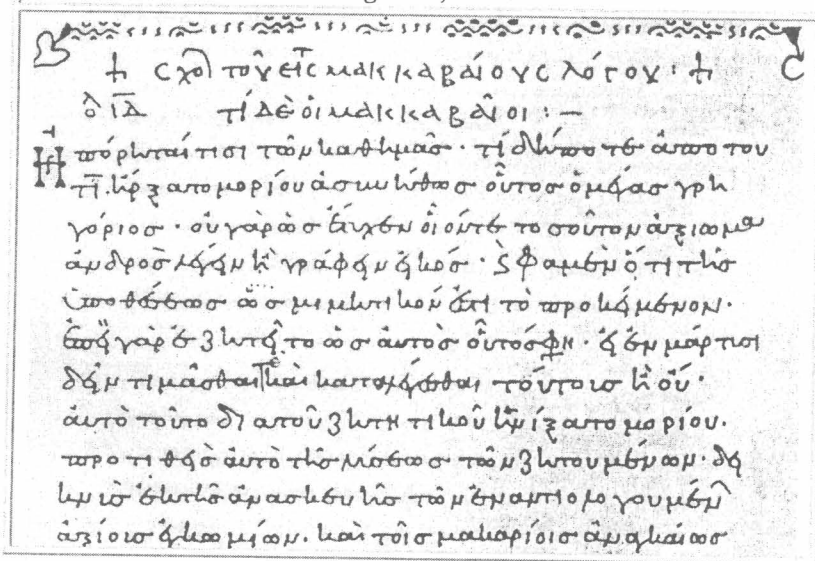 ☩ Σχο̑λ τοῦ εἰς μακκαβαίους λόγου · ☩
ὁ ι̅δ̅ τί δὲ οἱ μακκαβαῖοι · —
Ἠπόρηταί τισι τῶν καθ ἡμᾶς · τί δήποτε ἀπὸ του
τί. ἤρξατο μορίου ἀσυνήθως οὗτος ὁ μέγας γρη
γόριος · οὐ γὰρ ὡς ἔτυχεν
ἀνδρὸς λέγειν κ̀ γράφειν εἰκός · φαμὲν ὅτι τῆς
ὑποθέσεως ὡς μιμητικόν ἐστι τὸ προκείμενον ·
ἐπεὶ γὰρ ἐζητεῖτο ὡς αὐτὸς οὗτός φη · εἰ ἐν μάρτισι
δεῖν τιμᾶσθαι καὶ κατα τούτοις κ̀ οὐ ·
αὐτὸ τοῦτο διὰ τοῦ ζητητικοῦ ᾐνίξατο μορίου ·
προτιθεὶς αὐτὸ τῆς λύσεως τῶν ζητουμένων · δει
κνὺς ἐκ τῆς ἀνασκευῆς τῶν ἐναντιο
ἀξίοις ἐγκωμίων · καὶ τοῖς μακαρίοις ἀναγκαίως